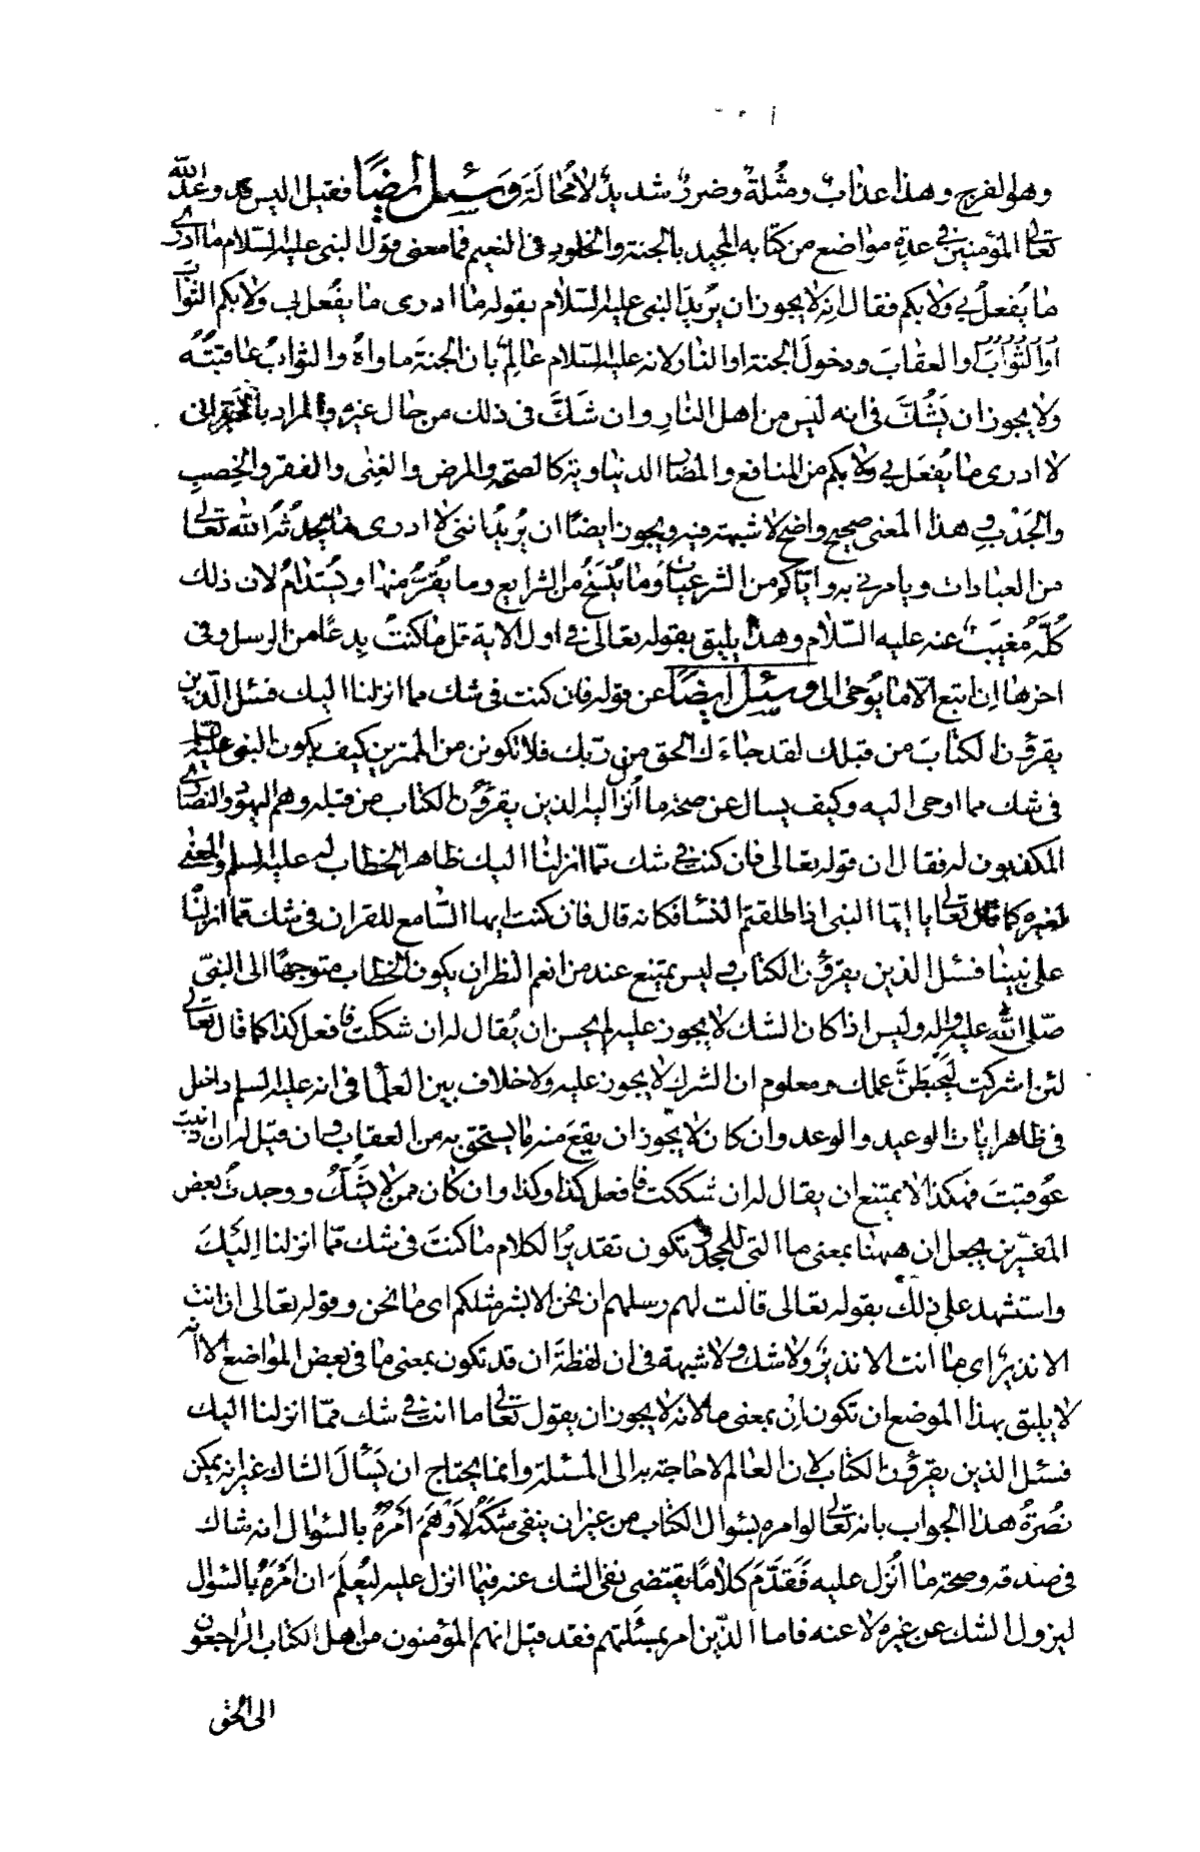 وهو لفرج وهذا عذاب ومثلة وضرر شديد لا محالة وسئل ايضا فقيل اليس قد وعد الله
تعالى المؤمنين في عدة مواضع من كتابه المجيد بالجنة والخلود في النعيم فما معنى قول النبي عليه السلام ما ادري
ما يفعل بي ولا بكم فقال انه لا يجوز ان يريد النبي عليه السلام بقوله ما ادري ما يفعل بي ولا بكم الثواب
او الثواب والعقاب ودخول الجنة او النار لانه عليه السلام عالم بان الجنة ماواه والثواب عاقبته
ولا يجوز ان يشك في انه ليس من اهل النار وان شك في ذلك من حال غيره والمراد بالآية انني
لا ادري ما يفعل بي ولا بكم من المنافع والمضار الدنياوية كالصحة والمرض والغنى والفقر والخصب
والجدب وهذا المعنى صحيح واضح لا شبهة فيه ويجوز ايضا ان يريد انني لا ادري ما يحدثه الله تعالى
من العبادات ويامرني به واياكم من الشرعيات وما ينسخ من الشرايع وما يقر منها ويستدام لان ذلك
كله مغيب عنه عليه السلام وهذا يليق بقوله تعالى في اول الاية قل ما كنت بدعا من الرسل وفي
اخرها ان اتبع الا ما يوحى الى وسئل ايضا عن قوله فان كنت في شك مما انزلنا اليك فسئل الذين
يقرؤن الكتاب من قبلك لقد جاءك الحق من ربك فلا تكونن من الممترين كيف يكون النبي عليه السلام
في شك مما اوحى اليه وكيف يسال عن صحة ما انزل اليه الذين يقرؤن الكتاب من قبله وهم اليهود والنصارى
المكذبون له فقال ان قوله تعالى فان كنت في شك مما انزلنا اليك ظاهر الخطاب له عليه السلم والمعنى
لغيره كما قال تعالى يا ايها النبي اذا طلقتم النسا فكانه قال فان كنت ايها السامع للقران في شك مما انزلنا
على نبينا فسئل الذين يقرؤن الكتاب وليس يمتنع عند من انعم النظر ان يكون الخطاب متوجها الى النبي
صلى الله عليه واله وليس اذا كان الشك لا يجوز عليه لم يحسن ان يقال له ان شككت فافعل كذا كما قال تعالى
لئن اشركت ليحبطن عملك ومعلوم ان الشرك لا يجوز عليه ولا خلاف بين العلما في انه عليه السلم داخل
في ظاهر ايات الوعيد والوعد وان كان لا يجوز ان يقع منه ما يستحق به من العقاب وان قيل له ان اذنبت
عوقبت فهكذا لا يمتنع ان يقال له ان شككت فافعل كذا وكذا وان كان ممن لا يشك ووجدت بعض
المفسرين يجعل ان ههنا بمعنى ما التي للجحد وتكون تقدير الكلام ما كنت في شك مما انزلنا اليك
واستشهد على ذلك بقوله تعالى قالت لهم رسلهم ان نحن الا بشر مثلكم اى ما نحن وقوله تعالى ان انت
الا نذير اي ما انت الا نذير ولا شك ولا شبهة في ان لفظة ان قد تكون بمعنى ما في بعض المواضع الا انه
لا يليق بهذا الموضع ان تكون ان بمعنى ما لانه لا يجوز ان يقول تعالى ما انت في شك مما انزلنا اليك
فسئل الذين يقرؤن الكتاب لان العالم لا حاجة به الى المسئلة وانما يحتاج ان يسال الشاك غير انه يمكن
نصرة هذا الجواب بانه تعالى لو امره بسئوال الكتاب من غير ان ينفى شكه لاوهم امره بالسئوال انه شاك
في صدقه وصحة ما انزل عليه فقدم كلاما يقتضي نفى الشك عنه فيما انزل عليه ليعلم ان امره بالسئوال
ليزول الشك عن غيره لا عنه فاما الذين امر بمسئلتهم فقد قيل انهم المؤمنون من اهل الكتاب الراجعون
الى الحق